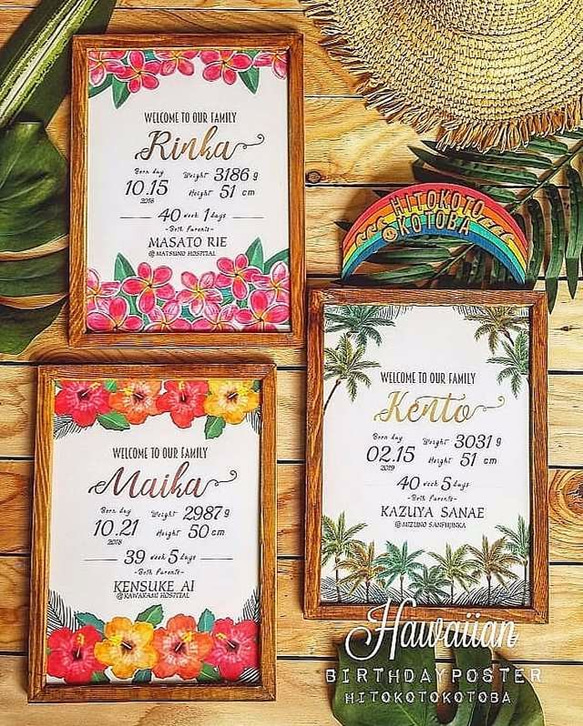 WELCOME TO OUR FAMILY
Rinka
Born day Weight 3186 g
10.15
2018
Height 51 cm
40 week 1 days
-Both Parents-
MASATO RIE
@MATSUNO HOSPITAL
HITOKOTO
KOTOBA
WELCOME TO OUR FAMILY
Kento
Born day Weight 3031 g
02.15
2019
Height 51 cm
40 week 5 days
-Both Parents-
KAZUYA SANAE
@MIZUNO SANFUJINKA
WELCOME TO OUR FAMILY
Maika
Born day Weight 2987 g
10.21
2018
Height 50 cm
39 week 5 days
-Both Parents-
KENSUKE AI
@KAWAKAMI HOSPITAL
Hawaiian
BIRTHDAYPOSTER
HITOKOTOKOTOBA